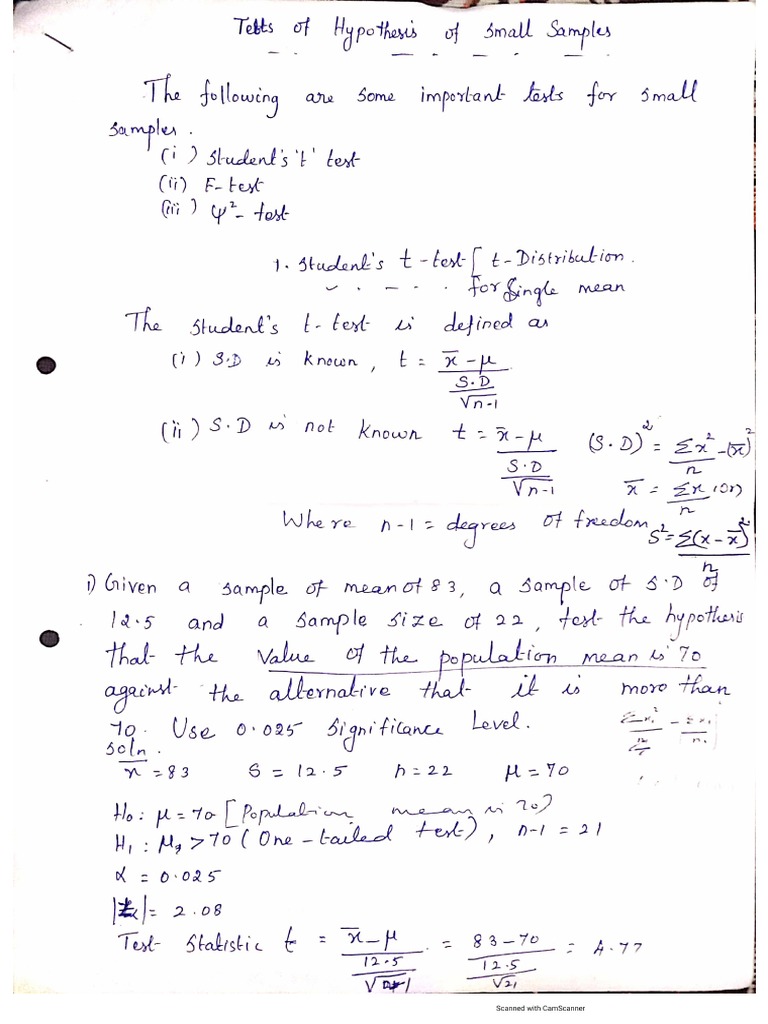 Tests of Hypothesis of Small Samples
The following are some important tests for small
samples.
(i) Student's 't' test
(ii) F-test
(iii) ψ²- test
1. Student's t-test [ t-Distribution.
for Single mean
The Student's t-test is defined as
(i) S.D is known, t = (x̄ - μ) / (S.D / √n-1)
(ii) S.D is not known t = (x̄ - μ) / (S.D / √n-1) (S.D)² = Σx² / n - (x̄)²
x̄ = Σx / n (or)
Where n-1 = degrees of freedom S² = Σ(x - x̄)² / n
1) Given a sample of mean of 83, a sample of S.D of
12.5 and a sample size of 22, test the hypothesis
that the value of the population mean is 70
against the alternative that it is more than
70. Use 0.025 Significance Level.
Soln.
x̄ = 83 S = 12.5 n = 22 μ = 70
H₀ : μ = 70 [Population mean is 70)
H₁ : μ > 70 (One-tailed test), n-1 = 21
α = 0.025
= 2.08
Test Statistic t = (x̄ - μ) / (12.5 / √n-1) = (83-70) / (12.5 / √21) = 4.77
Scanned with CamScanner